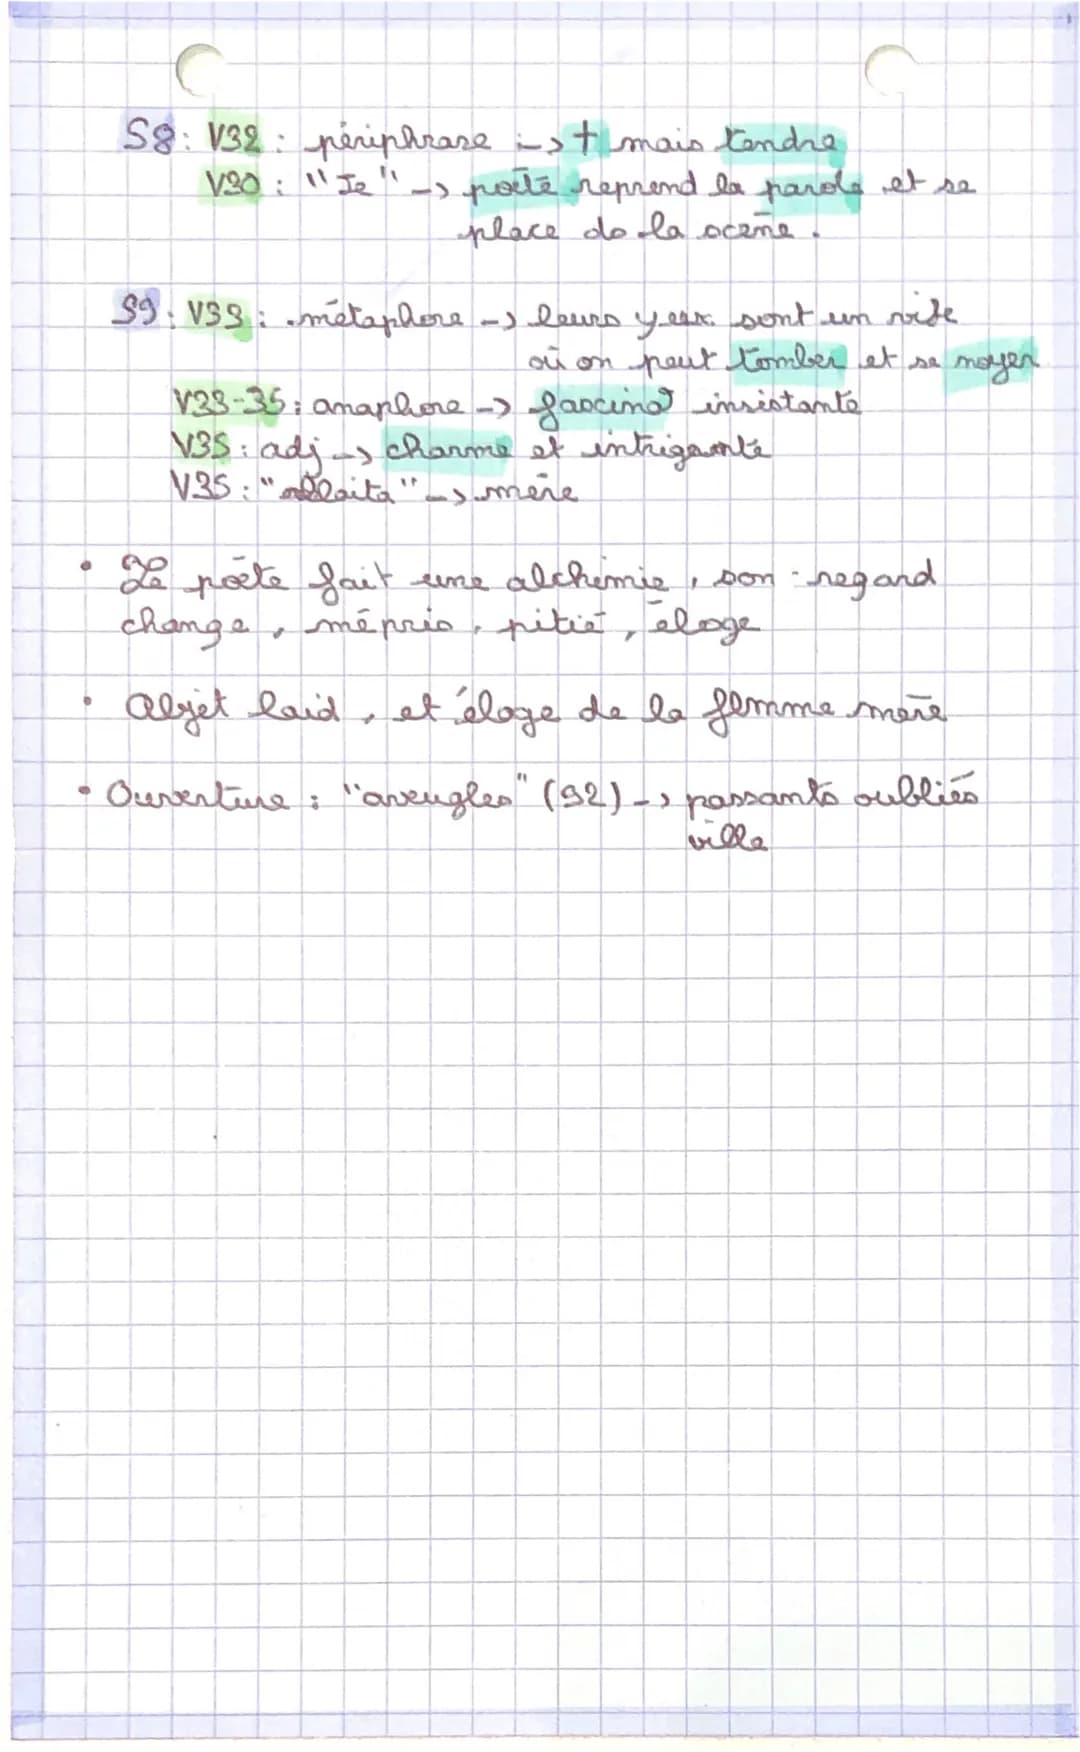 S8 : V32 : périphrase -> † mais tendre
V30 : "Je" -> poète reprend la parole et se
place ds la scène.
S9 : V33 : métaphore -> leurs yeux sont un vide
où on peut tomber et se noyer
V33-35 : anaphore -> fascino insistante
V35 : adj -> charme et intrigante
V35 : "allaita" -> mère
• Le poète fait une alchimie, son regard
change, mépris, pitié, éloge
• Objet laid, et éloge de la femme mère
• Ouverture : "aveugles" (92) -> passants oubliés
ville